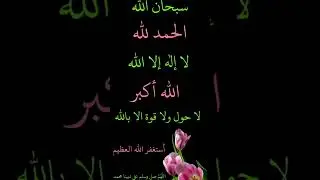 سبحان الله
الحمد لله
لا إله إلا الله
الله أكبر
لا حول ولا قوة الا بالله
أستغفر الله العظيم
اللهم صل وسلم على نبينا محمد